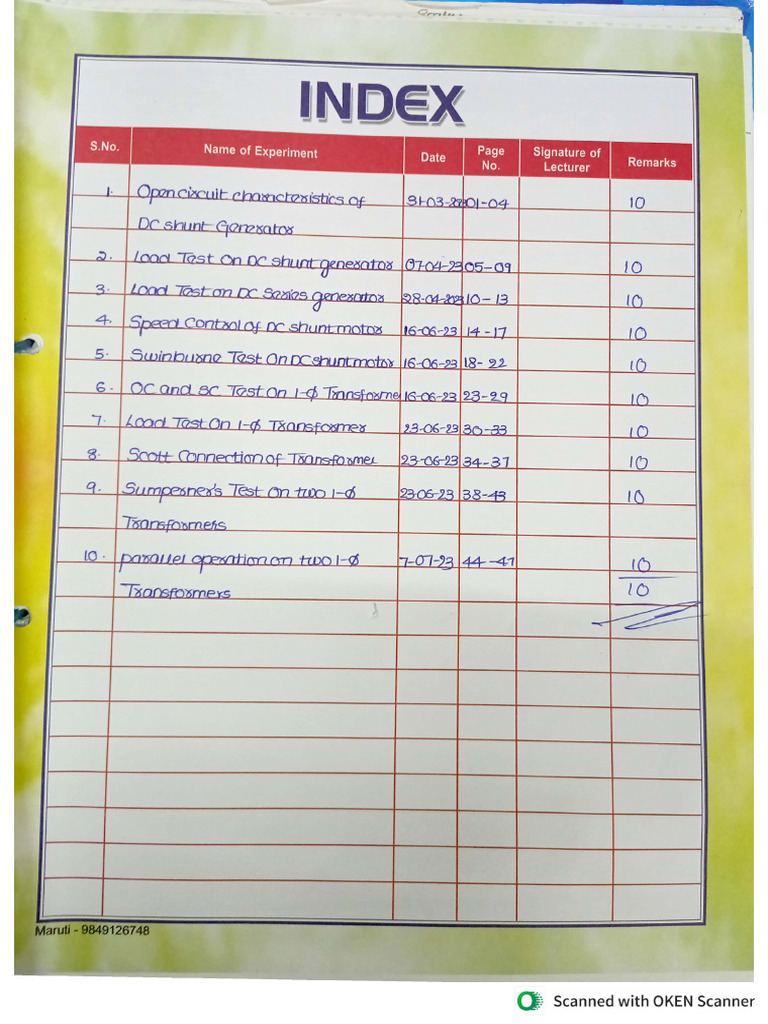 INDEX
S.No. Name of Experiment Date Page No. Signature of Lecturer Remarks
1. Open circuit characteristics of 31-03-2301-04 10
DC shunt Generator
2. Load Test On DC shunt generator 07-04-23 05-09 10
3. Load Test on DC Series generator 28-04-2023 10-13 10
4. Speed Control of DC shunt motor 16-06-23 14-17 10
5. Swinburne Test On DC shunt motor 16-06-23 18-22 10
6. OC and SC Test On 1-Φ Transforme 16-06-23 23-29 10
7. Load Test On 1-Φ Transformer 23-06-23 30-33 10
8. Scott Connection of Transformer 23-06-23 34-37 10
9. Sumperner's Test On two 1-Φ 23-06-23 38-43 10
Transformers
10. parallel operation on two 1-Φ 7-07-23 44-47 10
Transformers 10
Maruti - 9849126748
Scanned with OKEN Scanner